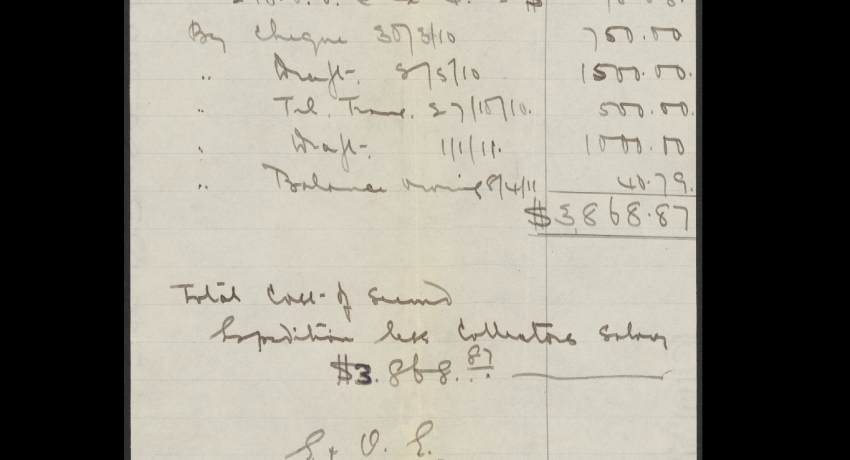 By Cheque 30/3/10 750.00
" Draft. 2/5/10 1500.00.
" Tel. Trans. 27/10/10. 500.00.
" Draft. 1/1/11. 1000.00
" Balance owing 8/4/11 40.79.
$3868.87
Total Cost of Second
Expedition less Collectors Salary
$3.868.87
E & O. E.